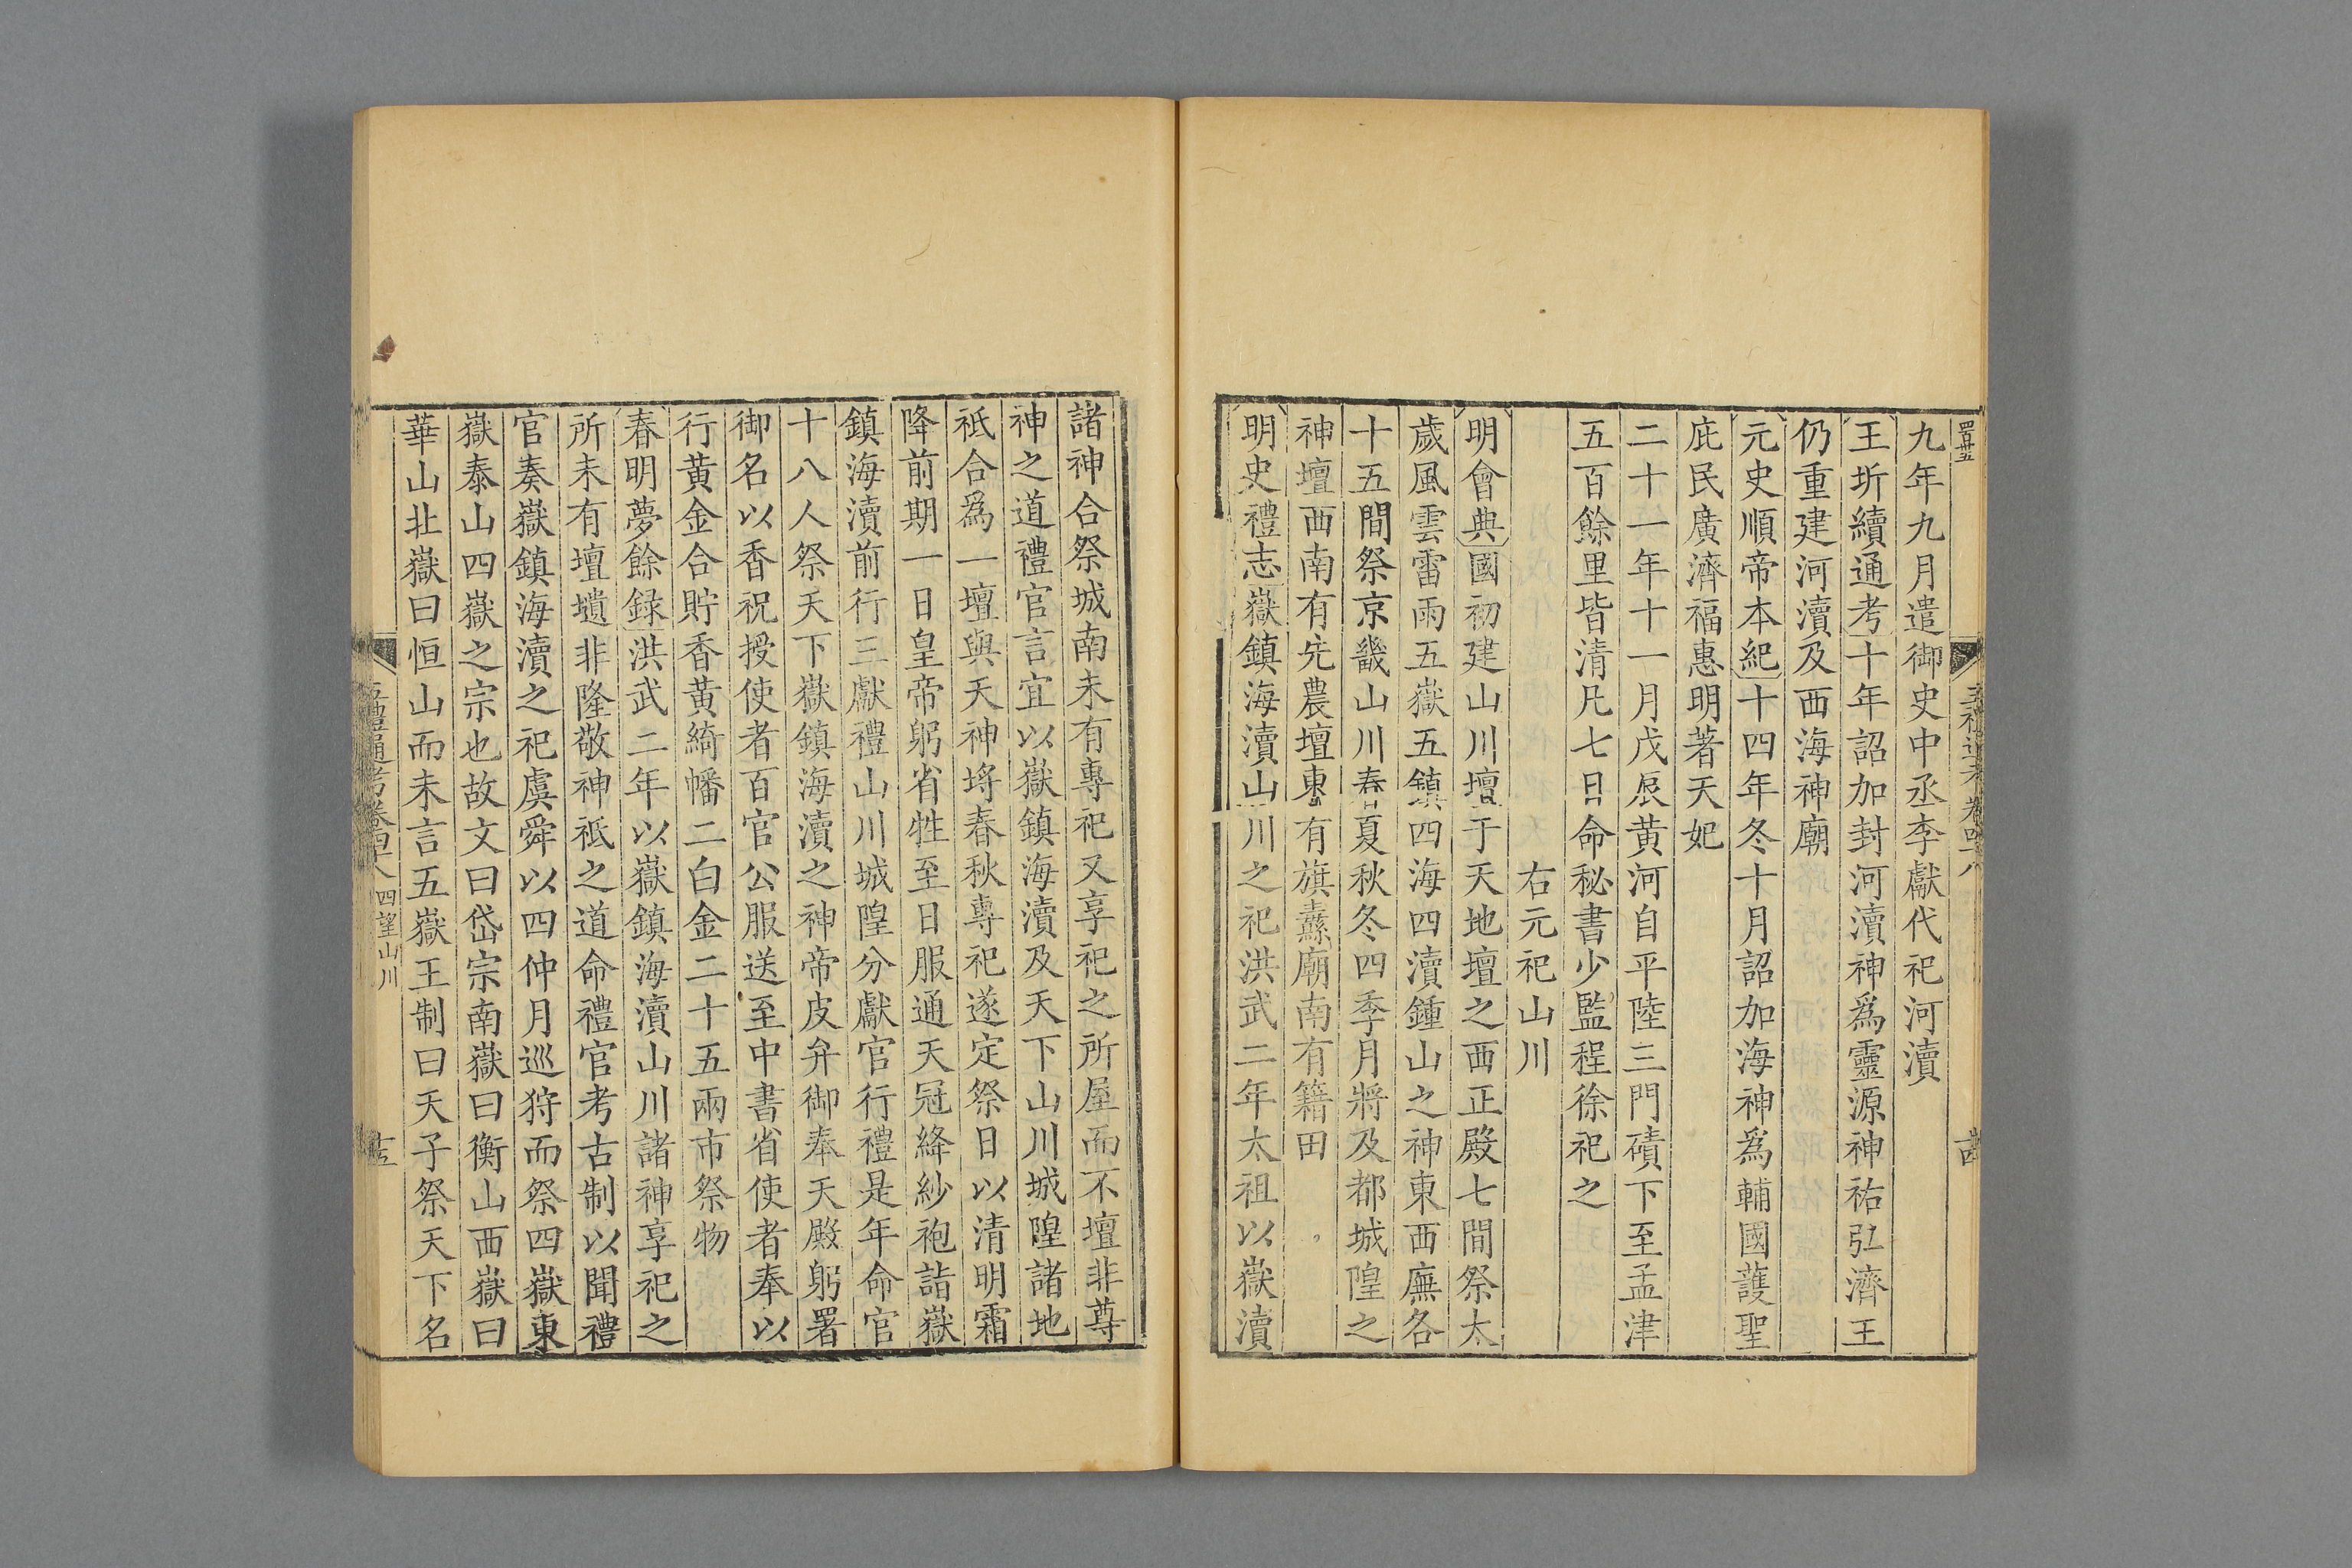 九年九月遣御史中丞李獻代祀河瀆
王圻續通考十年詔加封河瀆神爲靈源神祐弘濟王
仍重建河瀆及西海神廟
元史順帝本紀十四年冬十月詔加海神爲輔國護聖
庇民廣濟福惠明著天妃
二十一年十一月戊辰黄河自平陸三門磧下至孟津
五百餘里皆清凡七日命秘書少監程徐祀之
右元祀山川
明會典國初建山川壇于天地壇之西正殿七間祭太
歲風雲雷雨五嶽五鎮四海四瀆鍾山之神東西廡各
十五間祭京畿山川春夏秋冬四季月將及都城隍之
神壇西南有先農壇東有旗纛廟南有籍田
明史禮志嶽鎮海瀆山川之祀洪武二年太祖以嶽瀆
諸神合祭城南未有專祀又享祀之所屋而不壇非尊
神之道禮官言宜以嶽鎮海瀆及天下山川城隍諸地
祇合爲一壇與天神埓春秋專祀遂定祭日以清明霜
降前期一日皇帝躬省牲至日服通天冠絳紗袍詣嶽
鎮海瀆前行三獻禮山川城隍分獻官行禮是年命官
十八人祭天下嶽鎮海瀆之神帝皮弁御奉天殿躬署
御名以香祝授使者百官公服送至中書省使者奉以
行黄金合貯香黃綺幡二白金二十五兩市祭物
春明夢餘録洪武二年以嶽鎮海瀆山川諸神享祀之
所未有壇壝非隆敬神祇之道命禮官考古制以聞禮
官奏嶽鎮海瀆之祀虞舜以四仲月巡狩而祭四嶽東
嶽泰山四嶽之宗也故文曰岱宗南嶽曰衡山西嶽曰
華山北嶽曰恒山而未言五嶽王制曰天子祭天下名
五禮通考卷四十八 四望山川